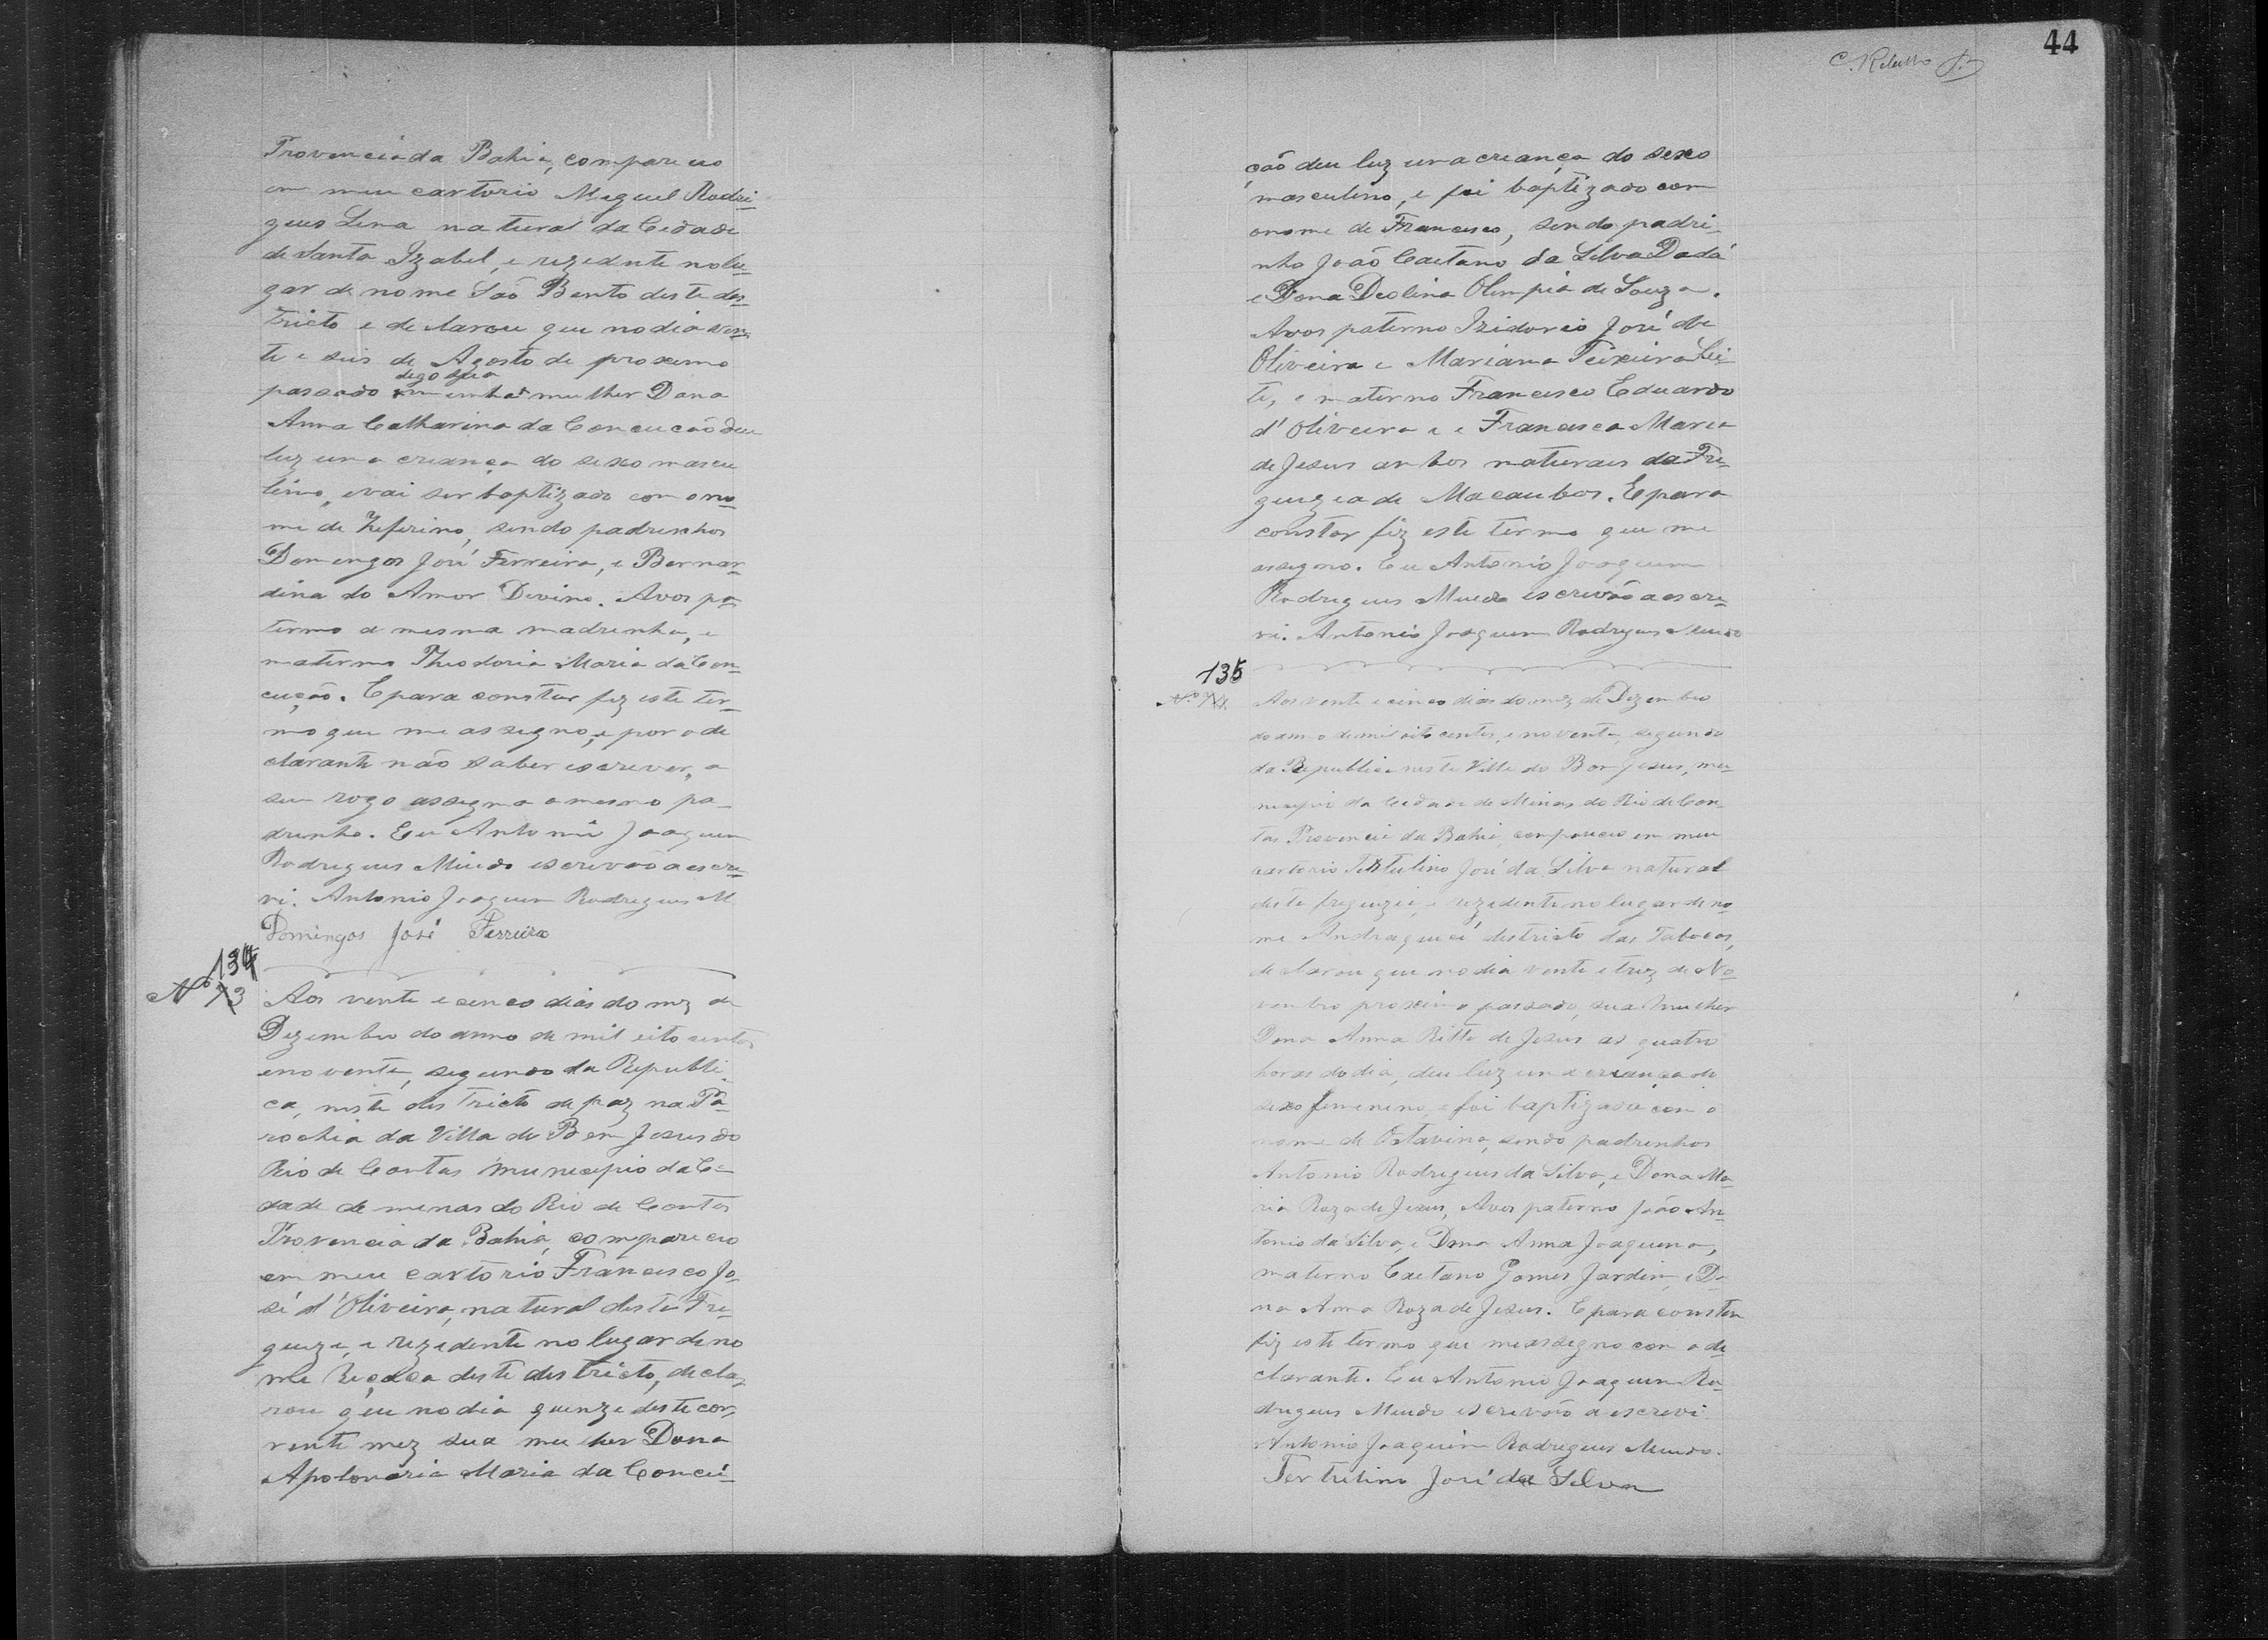 Provencia da Bahia, compareceo
em meu cartorio Meguel Rodri-
gues Lima natural da Cedade
de Santa Izabel, e rezedente no lu-
gar de nome São Bento deste des-
tricto e declarou que no dia ven-
te e seis de Agosto de proxemo
digo sua
passado minha mulher Dona
Anna Catharina da Conceução deu
luz uma creança do sexo mascu
leino, e vai ser baptizado com o no-
me de Zeferino, sendo padrinhos
Domengos José Ferreira, e Bernar-
dina do Amor Devino. Avos pa-
terno a mesma madrenha, e
materno Theodoria Maria da Con-
ceição. E para constar fiz este ter-
mo que me assegno, e por o de
clarante não saber escrever, a
seu rogo assegna o mesmo pa-
drenho. Eu Antonio Joaquim
Rodregues Miudo escrevão a escre-
vi. Antonio Joaquim Rodregues M
Domingos José Ferreira
134
No 73
Aos vente e cenco dias do mez de
Dezembro do anno de mil oito centos
e noventa, segundo da Republi-
ca, neste destricto de paz na Pa-
rochia da Villa de Bom Jesus do
Rio de Contas municepio da Ce-
dade de menas do Rio de Contas
Provencia da Bahia, compareceo
em meu cartorio Francisco Jo-
sé d'Oliveira, natural desta Fre-
guezia, e rezedente no lugar de no
me deste destricto, decla-
rou que no dia quenze deste cor-
rente mez sua mulher Dona
Apolonaria Maria da Concei-
44
ção deu luz uma creança do sexo
masculino, e foi baptizado com
o nome de Francisco, sendo padri-
nho João Caetano da Silva Dadá
e Dona Deolina Olimpia de Souza.
Avos paterno Izidorio José de
Oliveira e Mariana Teixeira Lei-
te, e materno Francisco Eduardo
d'Oliveira e e Francisca Maria
de Jesus ambos naturais da Fre-
guezia de Macaubas. E para
constar fiz este termo que me
assegno. Eu Antonio Joaquim
Rodregues Miudo escrevão a escre-
vi. Antonio Joaquim Rodregues Miudo
135
No
Aos vente e cinco dias do mez de Dezembro
do anno de mil oito centos, e noventa, segundo
da Republica neste Villa do Bom Jesus, mu-
nicepio da Cedade de Minas do Rio de Con-
tas Provencia da Bahia, compareceo em meu
cartorio Tertulino José da Silva natural
desta freguezia, e rezedente no lugar de no-
me Andraguicé destricto das Tabocas,
declarou que no dia vente e trez de No-
vembro proxeimo passado, sua mulher
Dona Anna Ritta de Jesus as quatro
horas do dia, deu luz uma creança do
sexo femenino, e foi baptizada com o
nome de Ostavina, sendo padrenhos
Antonio Rodregues da Silva, e Dona Ma-
ria Roza de Jesus, Avos paterno João An-
tonio da Silva, e Dona Anna Joaquena,
materno Caetano Gomes Jardim, e Do-
na Anna Roza de Jesus. E para constar
fiz este termo que me assegno com o de-
clarante. Eu Antonio Joaquim Ro-
dregues Miudo escrevão a escrevi
Antonio Joaquim Rodregues Miudo.
Tertulino José da Silva